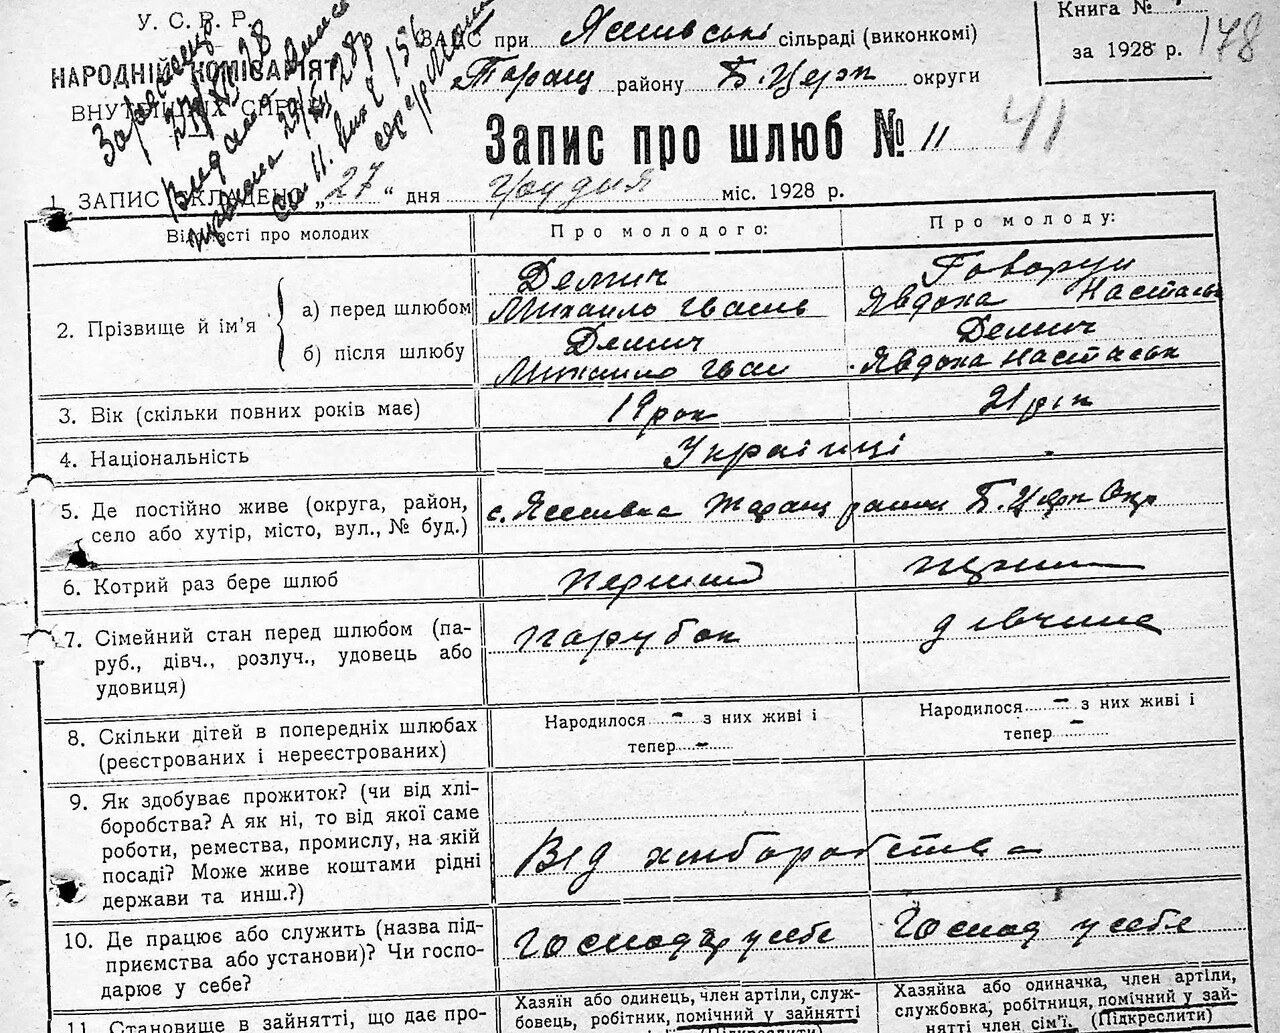 У. С. Р. Р.
НАРОДНІЙ КОМІСАРІЯТ
ВНУТРІШНІХ СПРАВ
ЗАПС при Яшивські сільраді (виконкомі)
Таращ району Б. Церк округи
Книга №
за 1928 р.
148
Запис про шлюб № 11
41
1. ЗАПИС СКЛАДЕНО „27“ дня грудня міс. 1928 р.
Відомості про молодих
Про молодого:
Про молоду:
2. Прізвище й ім'я
а) перед шлюбом
Демич
Михайло Іваснь
Говорун
Явдоха Настась
б) після шлюбу
Демич
Михайло Іван
Демич
Явдоха Настаськ
3. Вік (скільки повних років має)
19 рок
21 рік
4. Національність
Українці
5. Де постійно живе (округа, район,
село або хутір, місто, вул., № буд.)
с. Таращ Б. Церк Окр
6. Котрий раз бере шлюб
перший
перший
7. Сімейний стан перед шлюбом (па-
руб., дівч., розлуч., удовець або
удовиця)
парубок
дівчина
8. Скільки дітей в попередніх шлюбах
(реєстрованих і нереєстрованих)
Народилося – з них живі і
тепер –
Народилося – з них живі і
тепер –
9. Як здобуває прожиток? (чи від хлі-
боробства? А як ні, то від якої саме
роботи, ремества, промислу, на якій
посаді? Може живе коштами рідні
держави та инш.?)
Від хліборобства
10. Де працює або служить (назва під-
приємства або установи)? Чи госпо-
дарює у себе?
Господар у себе
Господ у себе
11. Становище в зайнятті, що дає про-
Хазяїн або одинець, член артіли, служ-
бовець, робітник, помічний у зайнятті
(Підкреслити)
Хазяйка або одиначка, член артіли,
службовка, робітниця, помічний у зай-
нятті член сім'ї. (Підкреслити)